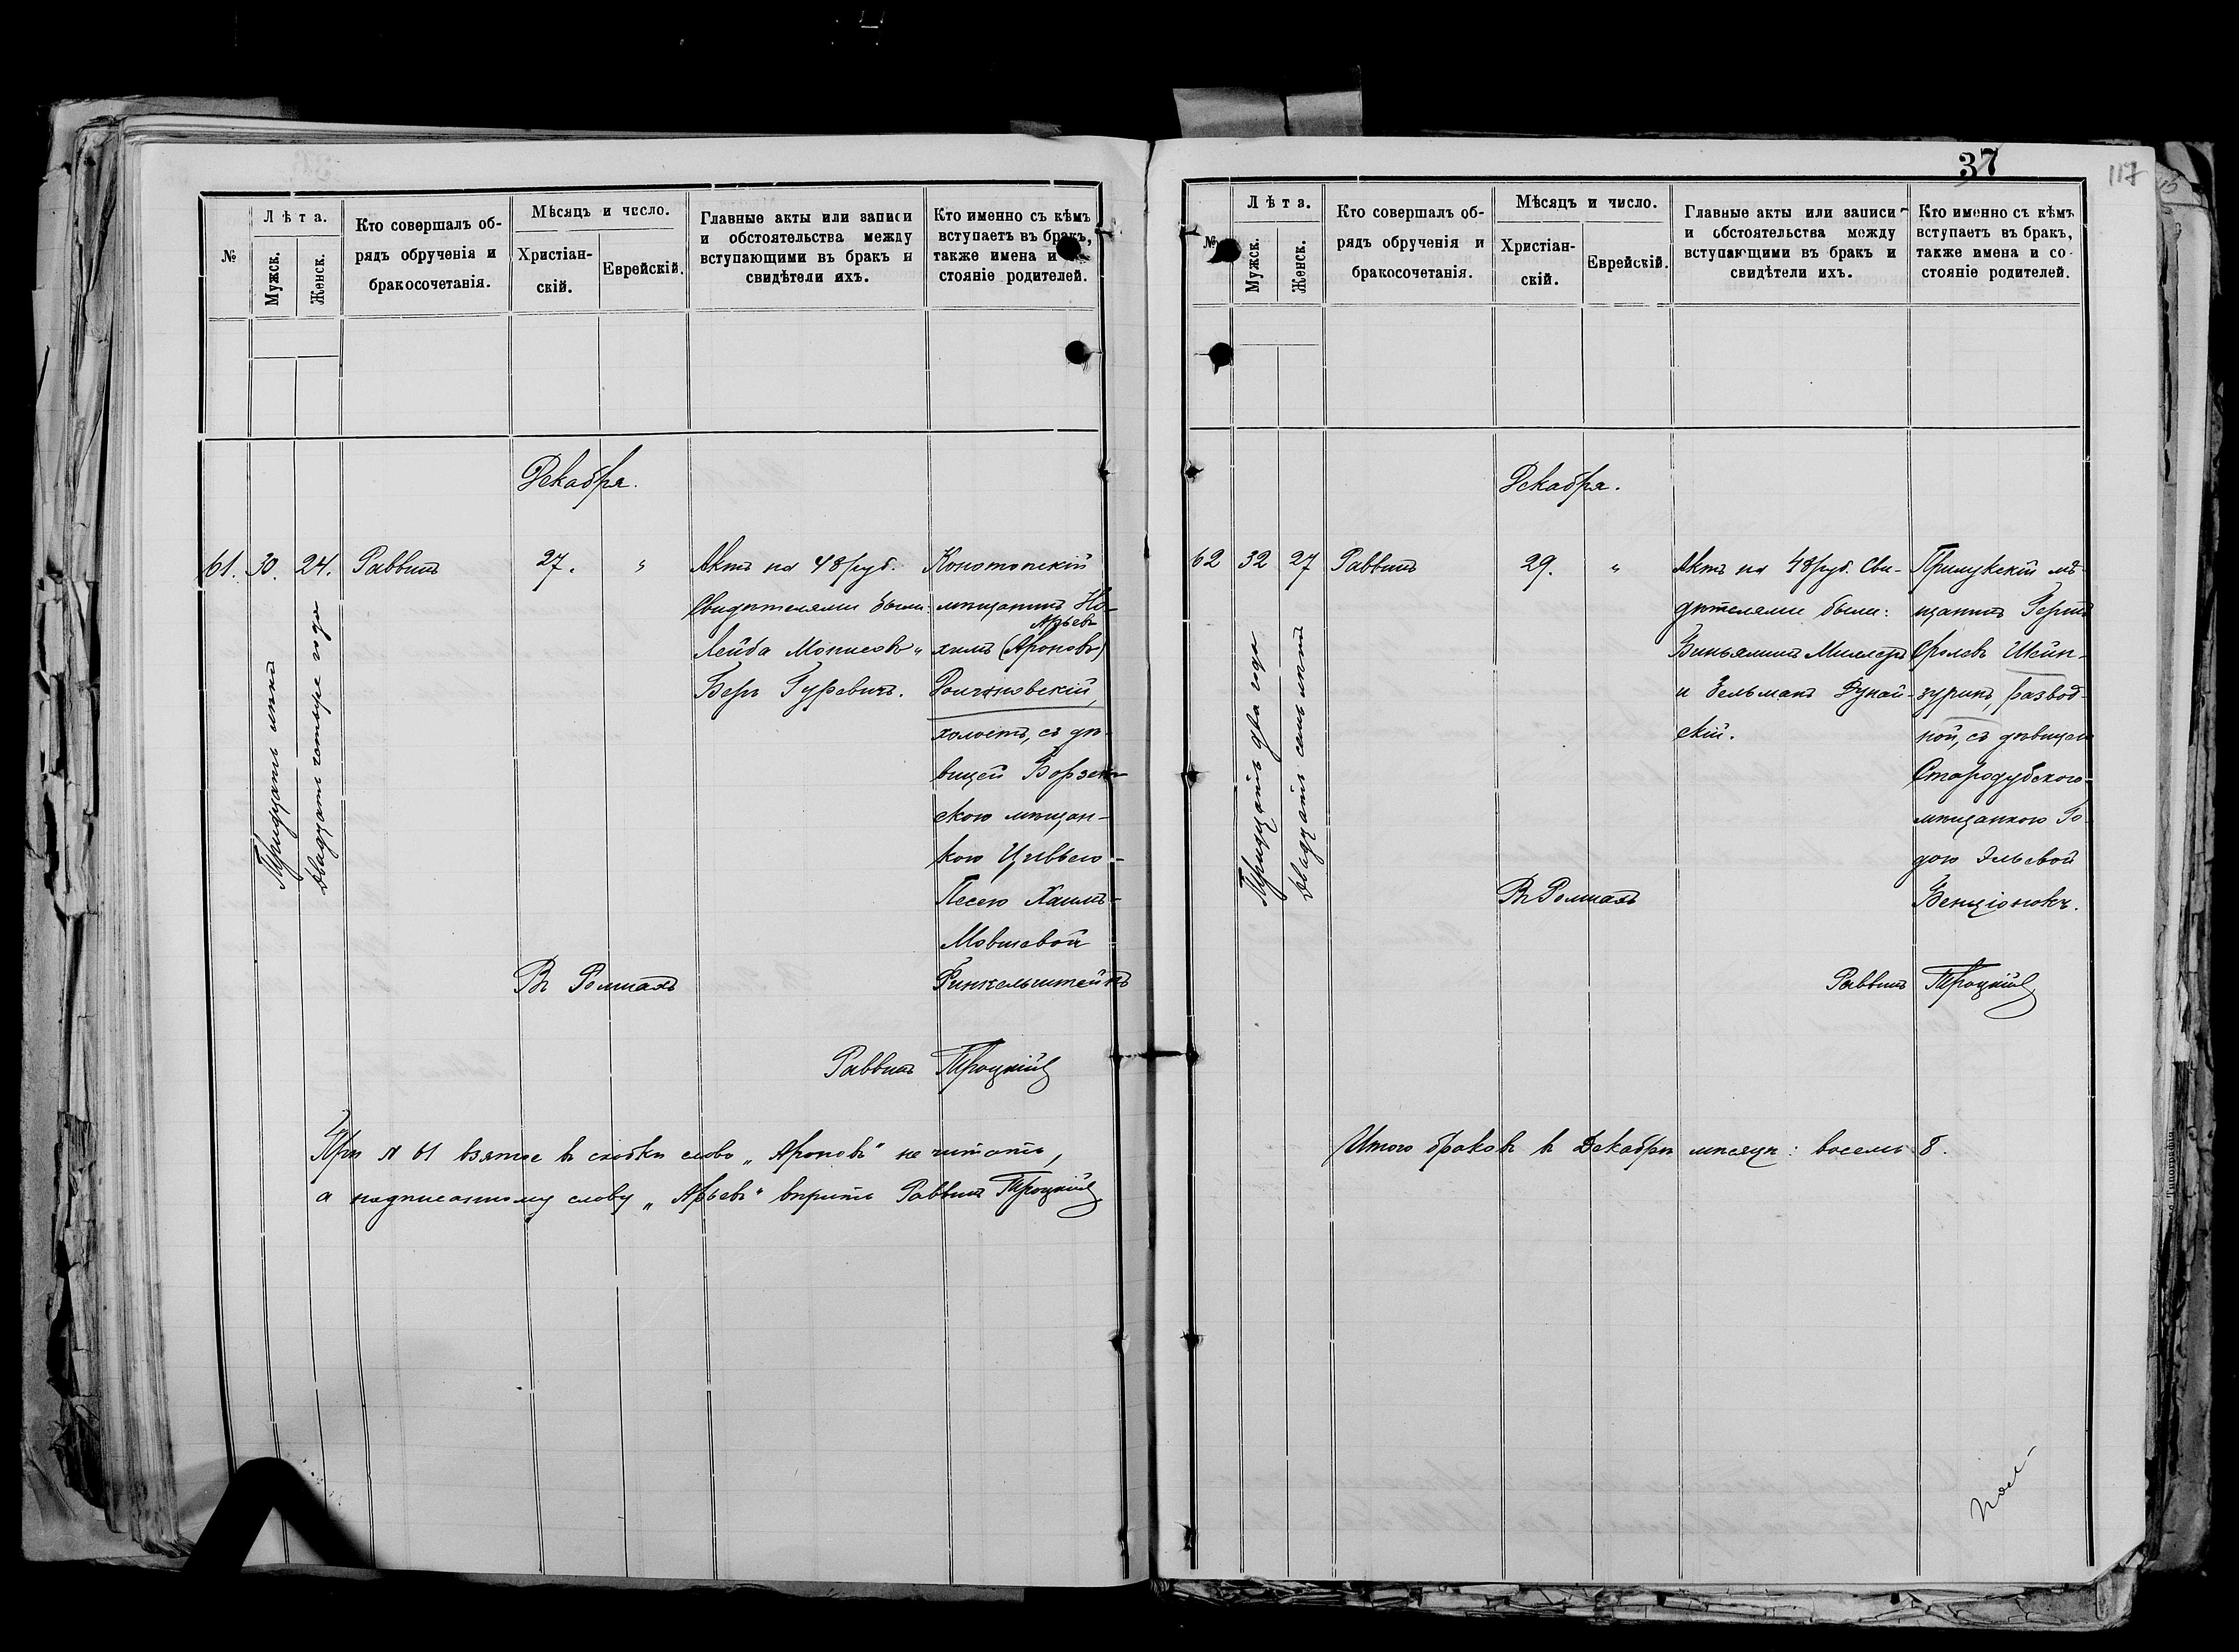 №
Лѣта.
Мужск.
Женск.
Кто совершалъ об-
рядъ обрученія и
бракосочетанія.
Мѣсяцъ и число.
Христіан-
скій.
Еврейскій.
Главные акты или записи
и обстоятельства между
вступающими въ бракъ и
свидѣтели ихъ.
Кто именно съ кѣмъ
вступаетъ въ бракъ,
также имена и
стояніе родителей.
Декабря.
61. 30. 24. Раввинъ 27. „
Тридцать лѣтъ
Двадцать четыре года
Актъ на 48 руб.
Свидѣтелями были:
Лейба Монисовъ „
Беръ Гуревичъ.
Конотопскій
мѣщанинъ На-
Арьевъ
химъ (Ароновъ)
холостъ, съ дѣ-
вицей Борзен-
скою мѣщан-
кою Цивьею-
Песею Хаимъ-
Мовшевой
Финкельштейнъ
Въ Ромнахъ
Раввинъ Троцкій
При № 61 взятое въ скобки слово „Ароновъ“ не читать,
а надписанному слову „Арьевъ“ вѣрить Раввинъ Троцкій
37
117
№
Лѣта.
Мужск.
Женск.
Кто совершалъ об-
рядъ обрученія и
бракосочетанія.
Мѣсяцъ и число.
Христіан-
скій.
Еврейскій.
Главные акты или записи
и обстоятельства между
вступающими въ бракъ и
свидѣтели ихъ.
Кто именно съ кѣмъ
вступаетъ въ бракъ,
также имена и со-
стояніе родителей.
Декабря.
62 32 27 Раввинъ 29. „
Тридцать два года
Двадцать семь лѣтъ
Актъ на 48 руб. Сви-
дѣтелями были:
Виньяминъ Миллеръ
и Зельманъ Дунай-
скій.
Прилукскій мѣ-
щанинъ Гершъ
Сролевъ Шейн-
развод-
ной, съ дѣвицею
Стародубскою
мѣщанкою Го-
дою Эльевой
Бенціоновъ.
Въ Ромнахъ
Раввинъ Троцкій
Итого браковъ въ Декабрѣ мѣсяцѣ: восемь 8.
Типографія